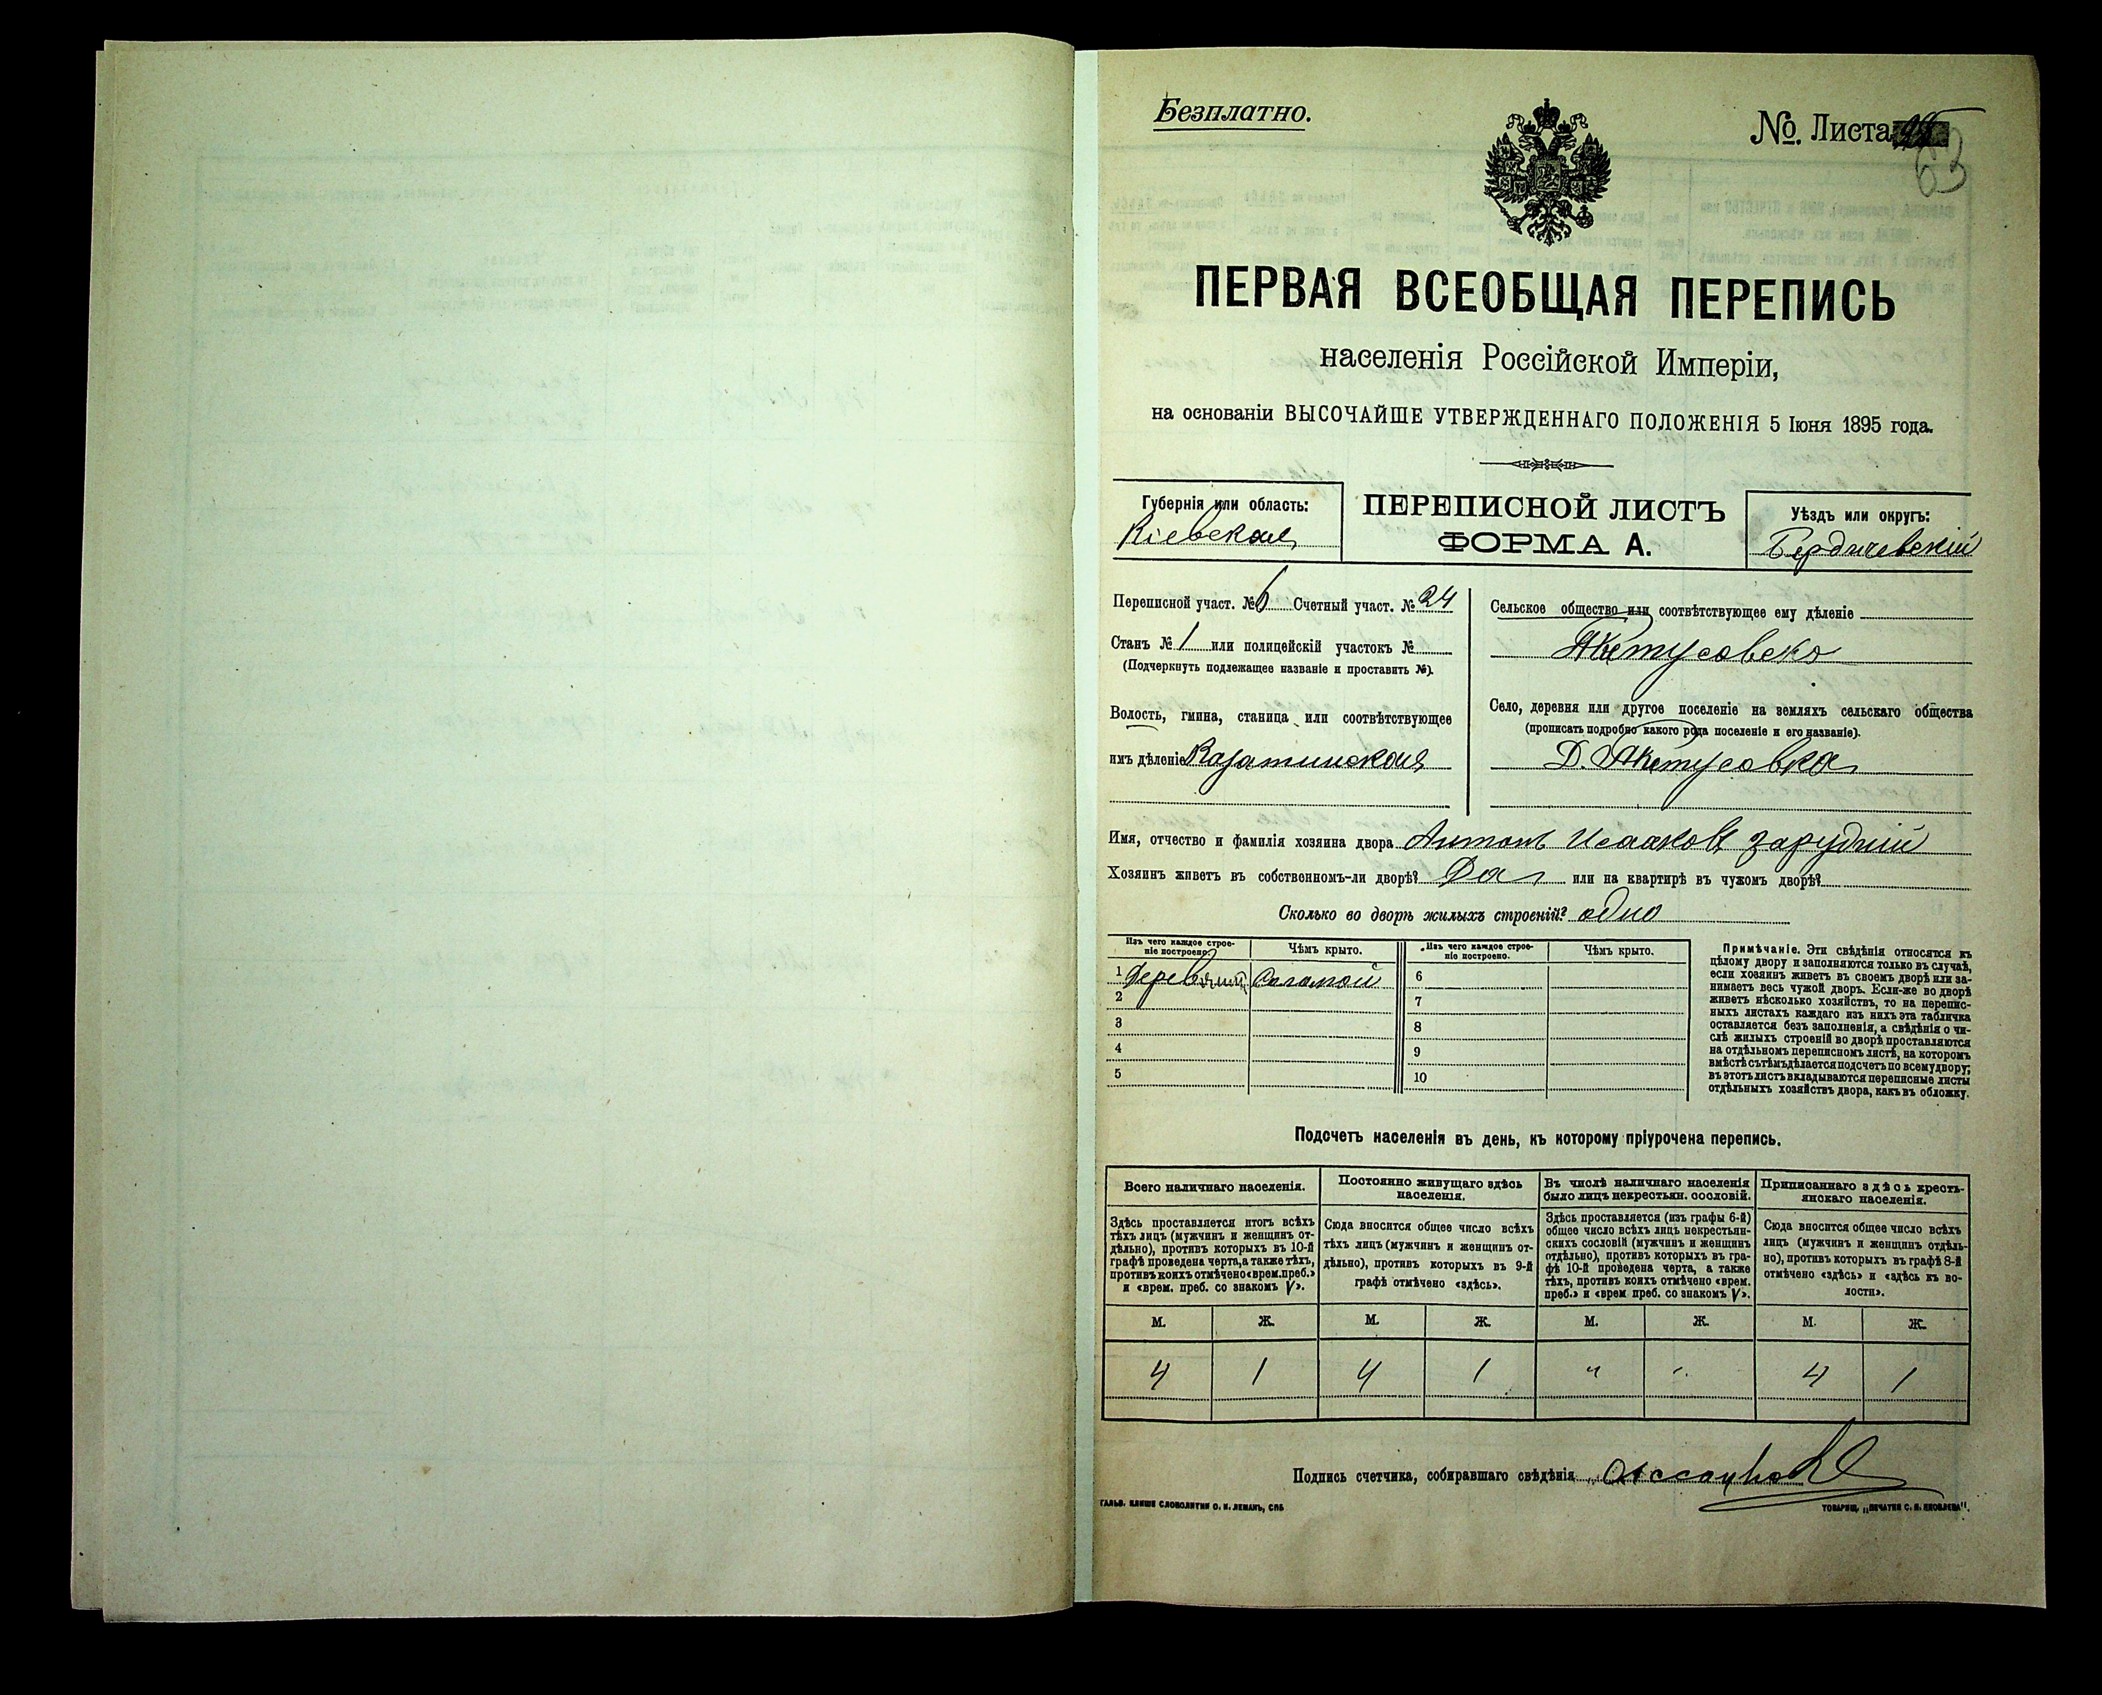 Безплатно.
№. Листа
63
ПЕРВАЯ ВСЕОБЩАЯ ПЕРЕПИСЬ
населенія Россійской Имперіи,
на основаніи ВЫСОЧАЙШЕ УТВЕРЖДЕННАГО ПОЛОЖЕНІЯ 5 Іюня 1895 года.
Губернія или область:
Кіевская
ПЕРЕПИСНОЙ ЛИСТЪ
ФОРМА А.
Уѣздъ или округъ:
Бердичевскій
Переписной участ. № 6 Счетный участ. № 24
Станъ № 1 или полицейскій участокъ №
(Подчеркнуть подлежащее названіе и проставить №).
Волость, гмина, станица или соотвѣтствующее
имъ дѣленіе Казатинская
Сельское общество или соотвѣтствующее ему дѣленіе
Село, деревня или другое поселеніе на земляхъ сельскаго общества
(прописать подробно какого рода поселеніе и его названіе).
Д.
Имя, отчество и фамилія хозяина двора Антонъ Исааковъ Зарудній
Хозяинъ живетъ въ собственномъ-ли дворѣ? Да или на квартирѣ въ чужомъ дворѣ?
Сколько во дворѣ жилыхъ строеній? одно
Изъ чего каждое строе-
ніе построено.
Чѣмъ крыто.
Изъ чего каждое строе-
ніе построено.
Чѣмъ крыто.
1 Соломой 6
2 7
3 8
4 9
5 10
Примѣчаніе. Эти свѣдѣнія относятся къ
цѣлому двору и заполняются только въ случаѣ,
если хозяинъ живетъ въ своемъ дворѣ или за-
нимаетъ весь чужой дворъ. Если-же во дворѣ
живетъ нѣсколько хозяйствъ, то на перепис-
ныхъ листахъ каждаго изъ нихъ эта табличка
оставляется безъ заполненія, а свѣдѣнія о чи-
слѣ жилыхъ строеній во дворѣ проставляются
на отдѣльномъ переписномъ листѣ, на которомъ
вмѣстѣ съ тѣмъ дѣлается подсчетъ по всему двору;
въ этотъ листъ вкладываются переписные листы
отдѣльныхъ хозяйствъ двора, какъ въ обложку.
Подсчетъ населенія въ день, къ которому пріурочена перепись.
Всего наличнаго населенія.
Здѣсь проставляется итогъ всѣхъ
тѣхъ лицъ (мужчинъ и женщинъ от-
дѣльно), противъ которыхъ въ 10-й
графѣ проведена черта, а также тѣхъ,
противъ коихъ отмѣчено «врем. преб.»
и «врем. преб. со знакомъ V».
Постоянно живущаго здѣсь
населенія.
Сюда вносится общее число всѣхъ
тѣхъ лицъ (мужчинъ и женщинъ от-
дѣльно), противъ которыхъ въ 9-й
графѣ отмѣчено «здѣсь».
Въ числѣ наличнаго населенія
было лицъ некрестьян. сословій.
Здѣсь проставляется (изъ графы 6-й)
общее число всѣхъ лицъ некрестьян-
скихъ сословій (мужчинъ и женщинъ
отдѣльно), противъ которыхъ въ гра-
фѣ 10-й проведена черта, а также
тѣхъ, противъ коихъ отмѣчено «врем.
преб.» и «врем преб. со знакомъ V».
Приписаннаго здѣсь кресть-
янскаго населенія.
Сюда вносится общее число всѣхъ
лицъ (мужчинъ и женщинъ отдѣль-
но), противъ которыхъ въ графѣ 8-й
отмѣчено «здѣсь» и «здѣсь къ во-
лости».
М. Ж. М. Ж. М. Ж. М. Ж.
4 1 4 1 " " 4 1
Подпись счетчика, собиравшаго свѣдѣнія
ГАЛЬВ. КЛИШЕ СЛОВОЛИТНИ О. И. ЛЕМАНЪ, СПБ
ТОВАРИЩ. „ПЕЧАТНИ С. П. ЯКОВЛЕВА".